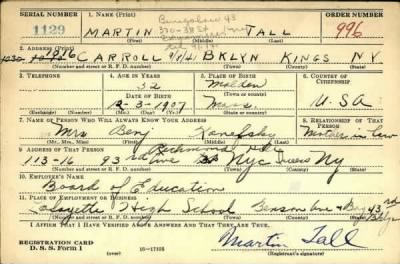 SERIAL NUMBER
1. NAME (Print)
ORDER NUMBER
1129
MARTIN TALL
996
(First) (Middle) (Last)
2. ADDRESS (Print)
1916 CARROLL BKLYN KINGS NY
(Number and street or R. F. D. number) (Town) (County) (State)
3. TELEPHONE
4. AGE IN YEARS
5. PLACE OF BIRTH
6. COUNTRY OF CITIZENSHIP
32
Malden
DATE OF BIRTH
(Town or county)
12-3-1907
Mass.
U.S.A
(Exchange) (No.)
(Mo.) (Day) (Yr.)
(State or country)
7. NAME OF PERSON WHO WILL ALWAYS KNOW YOUR ADDRESS
8. RELATIONSHIP OF THAT PERSON
Mrs Benj Kanefsky
Mother in law
(Mr., Mrs., Miss) (First) (Middle) (Last)
9. ADDRESS OF THAT PERSON
Richmond Hill
113-16 93rd Ave NYC Queens NY
(Number and street or R. F. D. number) (Town) (County) (State)
10. EMPLOYER'S NAME
Board of Education
11. PLACE OF EMPLOYMENT OR BUSINESS
Lafayette High School Benson Ave & Bay 43rd Bklyn
(Number and street or R. F. D. number) (Town) (County) (State)
I AFFIRM THAT I HAVE VERIFIED ABOVE ANSWERS AND THAT THEY ARE TRUE.
REGISTRATION CARD
D. S. S. Form 1
(over)
16-17105
Martin Tall
(Registrant's signature)